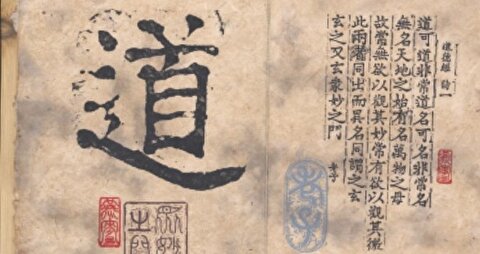 道德經
道可道非常道名可名非常名
無名天地之始有名萬物之母
故常無欲以觀其妙常有欲以觀其徼
此兩者同出而異名同謂之玄
玄之又玄眾妙之門
老子
老子
道
眾妙
之門